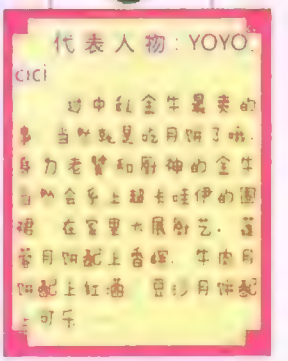 代表人物：YOYO.
cici
过中秋金牛最爱的
事 当然就是吃月饼了哦.
身为老饕和厨神的金牛
当然会手上超卡哇伊的围
裙 在家里大展厨艺. 莲
蓉月饼配上香槟. 牛肉月
饼配上红酒 豆沙月饼配
上可乐